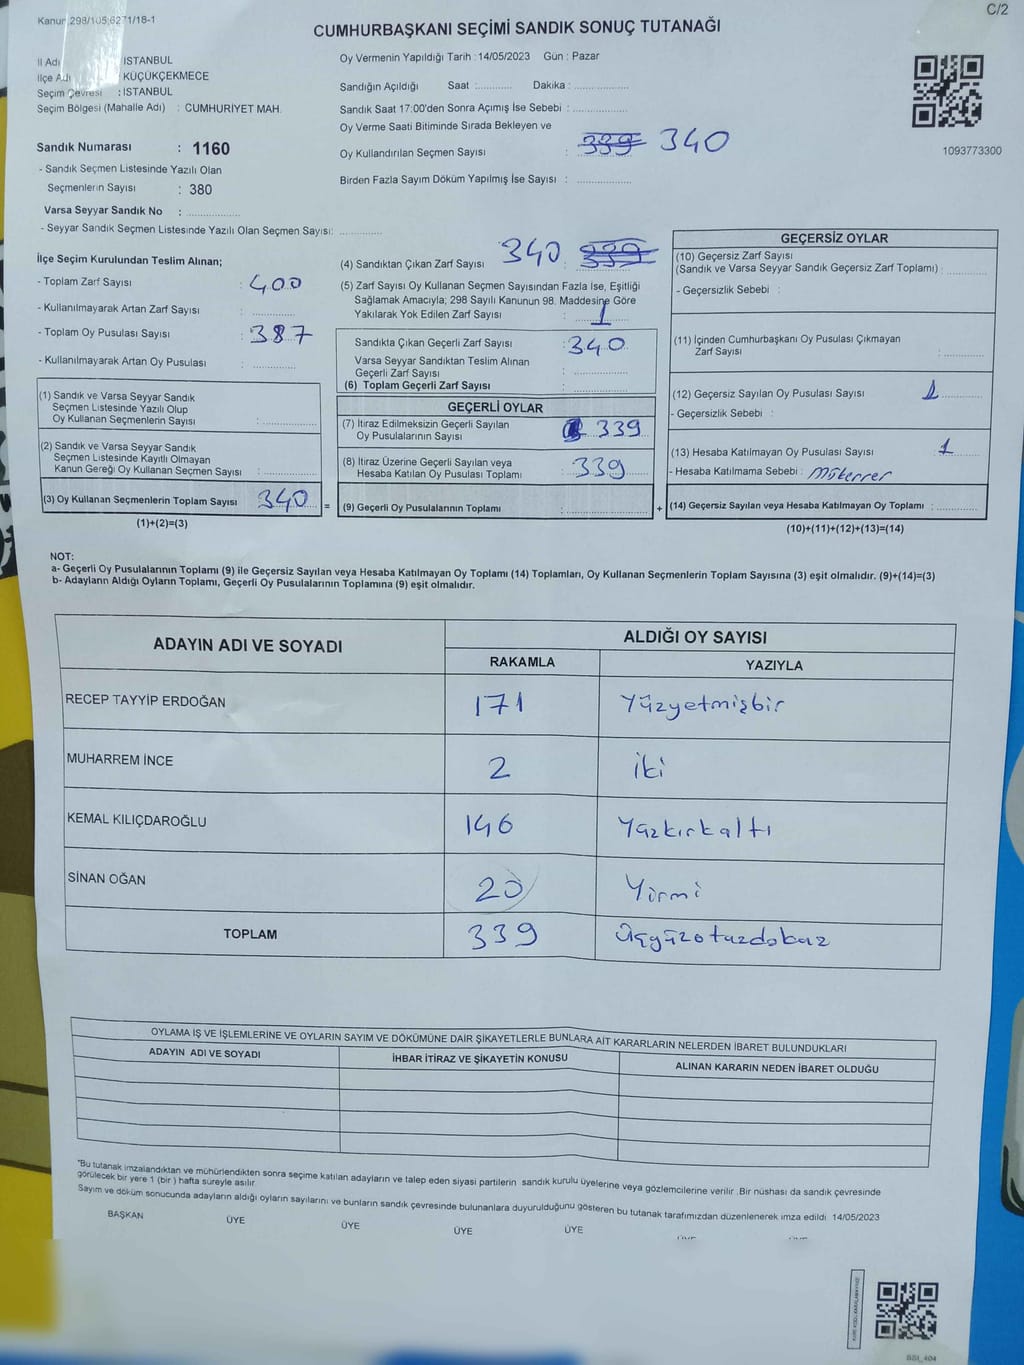 C/2
Kanun 298/105;6271/18-1
CUMHURBAŞKANI SEÇİMİ SANDIK SONUÇ TUTANAĞI
İl Adı : İSTANBUL
İlçe Adı : KÜÇÜKÇEKMECE
Seçim Çevresi : İSTANBUL
Seçim Bölgesi (Mahalle Adı) : CUMHURİYET MAH.
Sandık Numarası : 1160
- Sandık Seçmen Listesinde Yazılı Olan
Seçmenlerin Sayısı : 380
Varsa Seyyar Sandık No : ..................
- Seyyar Sandık Seçmen Listesinde Yazılı Olan Seçmen Sayısı: ..............
Oy Vermenin Yapıldığı Tarih : 14/05/2023 Gün : Pazar
Sandığın Açıldığı Saat :............ Dakika : ..................
Sandık Saat 17:00'den Sonra Açımış İse Sebebi : ..................
Oy Verme Saati Bitiminde Sırada Bekleyen ve
Oy Kullandırılan Seçmen Sayısı : 339 340
Birden Fazla Sayım Döküm Yapılmış İse Sayısı : ..................
1093773300
İlçe Seçim Kurulundan Teslim Alınan;
- Toplam Zarf Sayısı : 400
- Kullanılmayarak Artan Zarf Sayısı : ..............
- Toplam Oy Pusulası Sayısı : 387
- Kullanılmayarak Artan Oy Pusulası : ..............
(1) Sandık ve Varsa Seyyar Sandık
Seçmen Listesinde Yazılı Olup
Oy Kullanan Seçmenlerin Sayısı : ..................
(2) Sandık ve Varsa Seyyar Sandık
Seçmen Listesinde Kayıtlı Olmayan
Kanun Gereği Oy Kullanan Seçmen Sayısı : ..................
(3) Oy Kullanan Seçmenlerin Toplam Sayısı 340 =
(1)+(2)=(3)
(4) Sandıktan Çıkan Zarf Sayısı 340 : 339
(5) Zarf Sayısı Oy Kullanan Seçmen Sayısından Fazla İse, Eşitliği
Sağlamak Amacıyla; 298 Sayılı Kanunun 98. Maddesine Göre
Yakılarak Yok Edilen Zarf Sayısı : 1
Sandıkta Çıkan Geçerli Zarf Sayısı : 340
Varsa Seyyar Sandıktan Teslim Alınan
Geçerli Zarf Sayısı : ..................
(6) Toplam Geçerli Zarf Sayısı : ..................
GEÇERLİ OYLAR
(7) İtiraz Edilmeksizin Geçerli Sayılan
Oy Pusulalarının Sayısı : 339
(8) İtiraz Üzerine Geçerli Sayılan veya
Hesaba Katılan Oy Pusulası Toplamı : 339
(9) Geçerli Oy Pusulalarının Toplamı : .................. +
GEÇERSİZ OYLAR
(10) Geçersiz Zarf Sayısı
(Sandık ve Varsa Seyyar Sandık Geçersiz Zarf Toplamı) : ............
- Geçersizlik Sebebi :
(11) İçinden Cumhurbaşkanı Oy Pusulası Çıkmayan
Zarf Sayısı : ............
(12) Geçersiz Sayılan Oy Pusulası Sayısı 1
- Geçersizlik Sebebi :
(13) Hesaba Katılmayan Oy Pusulası Sayısı : 1
- Hesaba Katılmama Sebebi : Mükerrer
(14) Geçersiz Sayılan veya Hesaba Katılmayan Oy Toplamı : ............
(10)+(11)+(12)+(13)=(14)
NOT:
a- Geçerli Oy Pusulalarının Toplamı (9) ile Geçersiz Sayılan veya Hesaba Katılmayan Oy Toplamı (14) Toplamları, Oy Kullanan Seçmenlerin Toplam Sayısına (3) eşit olmalıdır. (9)+(14)=(3)
b- Adayların Aldığı Oyların Toplamı, Geçerli Oy Pusulalarının Toplamına (9) eşit olmalıdır.
ADAYIN ADI VE SOYADI ALDIĞI OY SAYISI
RAKAMLA YAZIYLA
RECEP TAYYİP ERDOĞAN 171 Yüzyetmişbir
MUHARREM İNCE 2 iki
KEMAL KILIÇDAROĞLU 146 Yüzkırkaltı
SİNAN OĞAN 20 Yirmi
TOPLAM 339 Üçyüzotuzdokuz
OYLAMA İŞ VE İŞLEMLERİNE VE OYLARIN SAYIM VE DÖKÜMÜNE DAİR ŞİKAYETLERLE BUNLARA AİT KARARLARIN NELERDEN İBARET BULUNDUKLARI
ADAYIN ADI VE SOYADI İHBAR İTİRAZ VE ŞİKAYETİN KONUSU ALINAN KARARIN NEDEN İBARET OLDUĞU
*Bu tutanak imzalandıktan ve mühürlendikten sonra seçime katılan adayların ve talep eden siyasi partilerin sandık kurulu üyelerine veya gözlemcilerine verilir .Bir nüshası da sandık çevresinde
görülecek bir yere 1 (bir ) hafta süreyle asılır.
Sayım ve döküm sonucunda adayların aldığı oyların sayılarını ve bunların sandık çevresinde bulunanlara duyurulduğunu gösteren bu tutanak tarafımızdan düzenlenerek imza edildi 14/05/2023
BAŞKAN ÜYE ÜYE ÜYE ÜYE